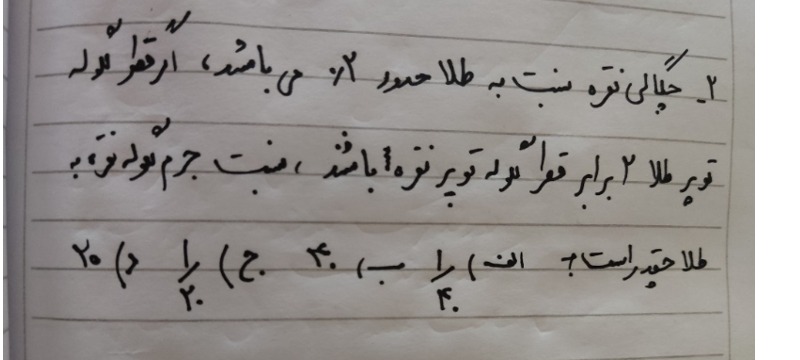 ۲ـ چگالی نقره نسبت به طلا حدود ۰٫۲ می باشد، اگر قطر گلوله
توپر طلا ۲ برابر قطر گلوله توپر نقره باشد، نسبت جرم گلوله نقره به
طلا چقدر است؟ الف) ۱/۴۰ ب) ۴۰ ج) ۱/۲۰ د) ۲۰